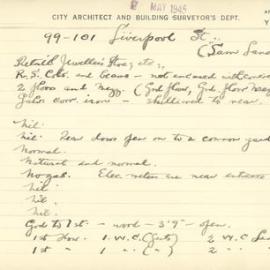 8 MAY 1945
CITY ARCHITECT AND BUILDING SURVEYOR'S DEPT.
99-101 Liverpool St.
(Sam Land
Retail Jewellers Shop, etc.
R. S. Cols. and beams - not encased
2 floors and Mezz. (Grd floor, Grd. floor Mezz
iron - shuttered to rear.
Nil.
Nil. Rear doors open on to a common yard
Normal.
Natural and normal.
No gas. Elec. meters are near entrance
Nil
Nil.
Nil.
Grd to 1st - wood - 3'9" - open
1st floor. 1 W.C. (Gents) 2 W.C.
1st " 1 " (") 2